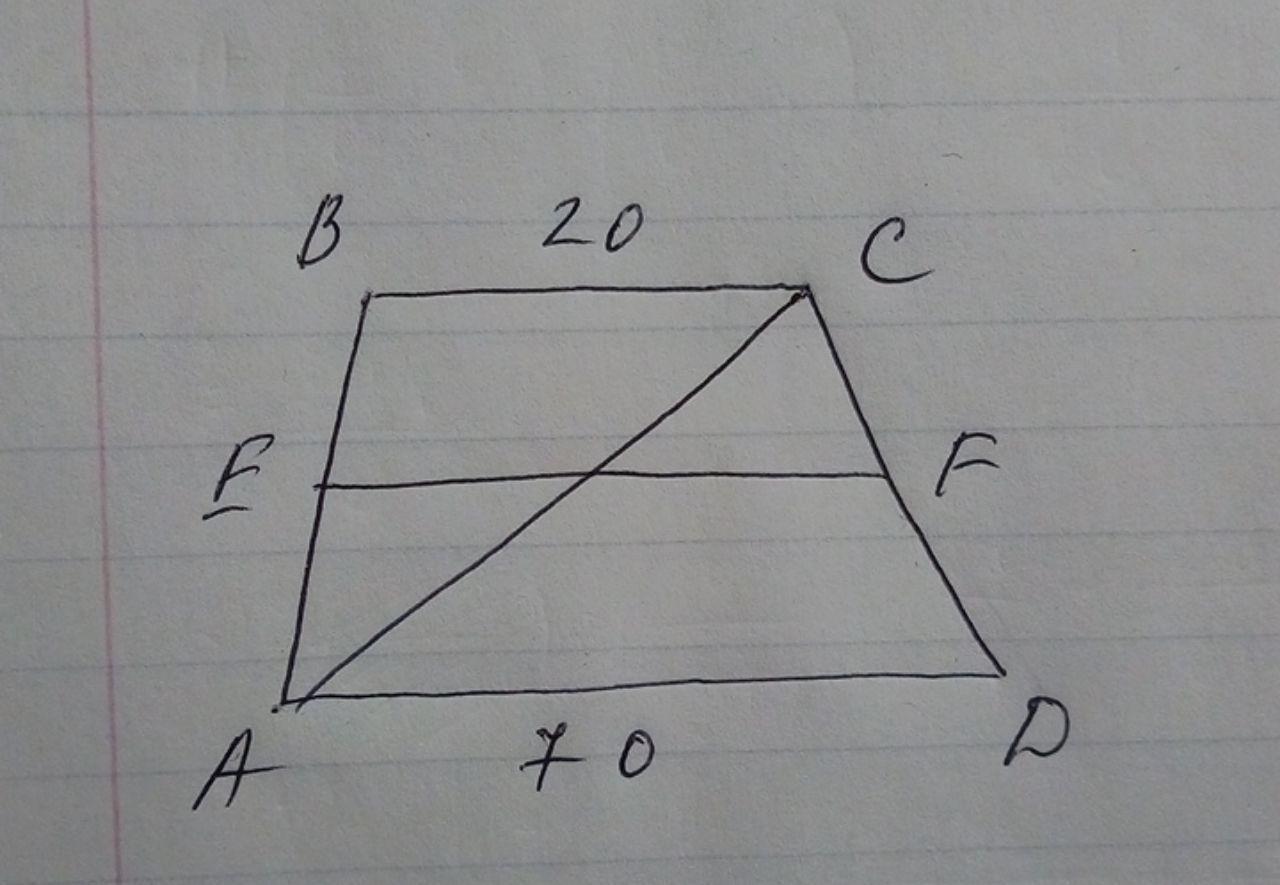 B 20 C
E F
A 70 D